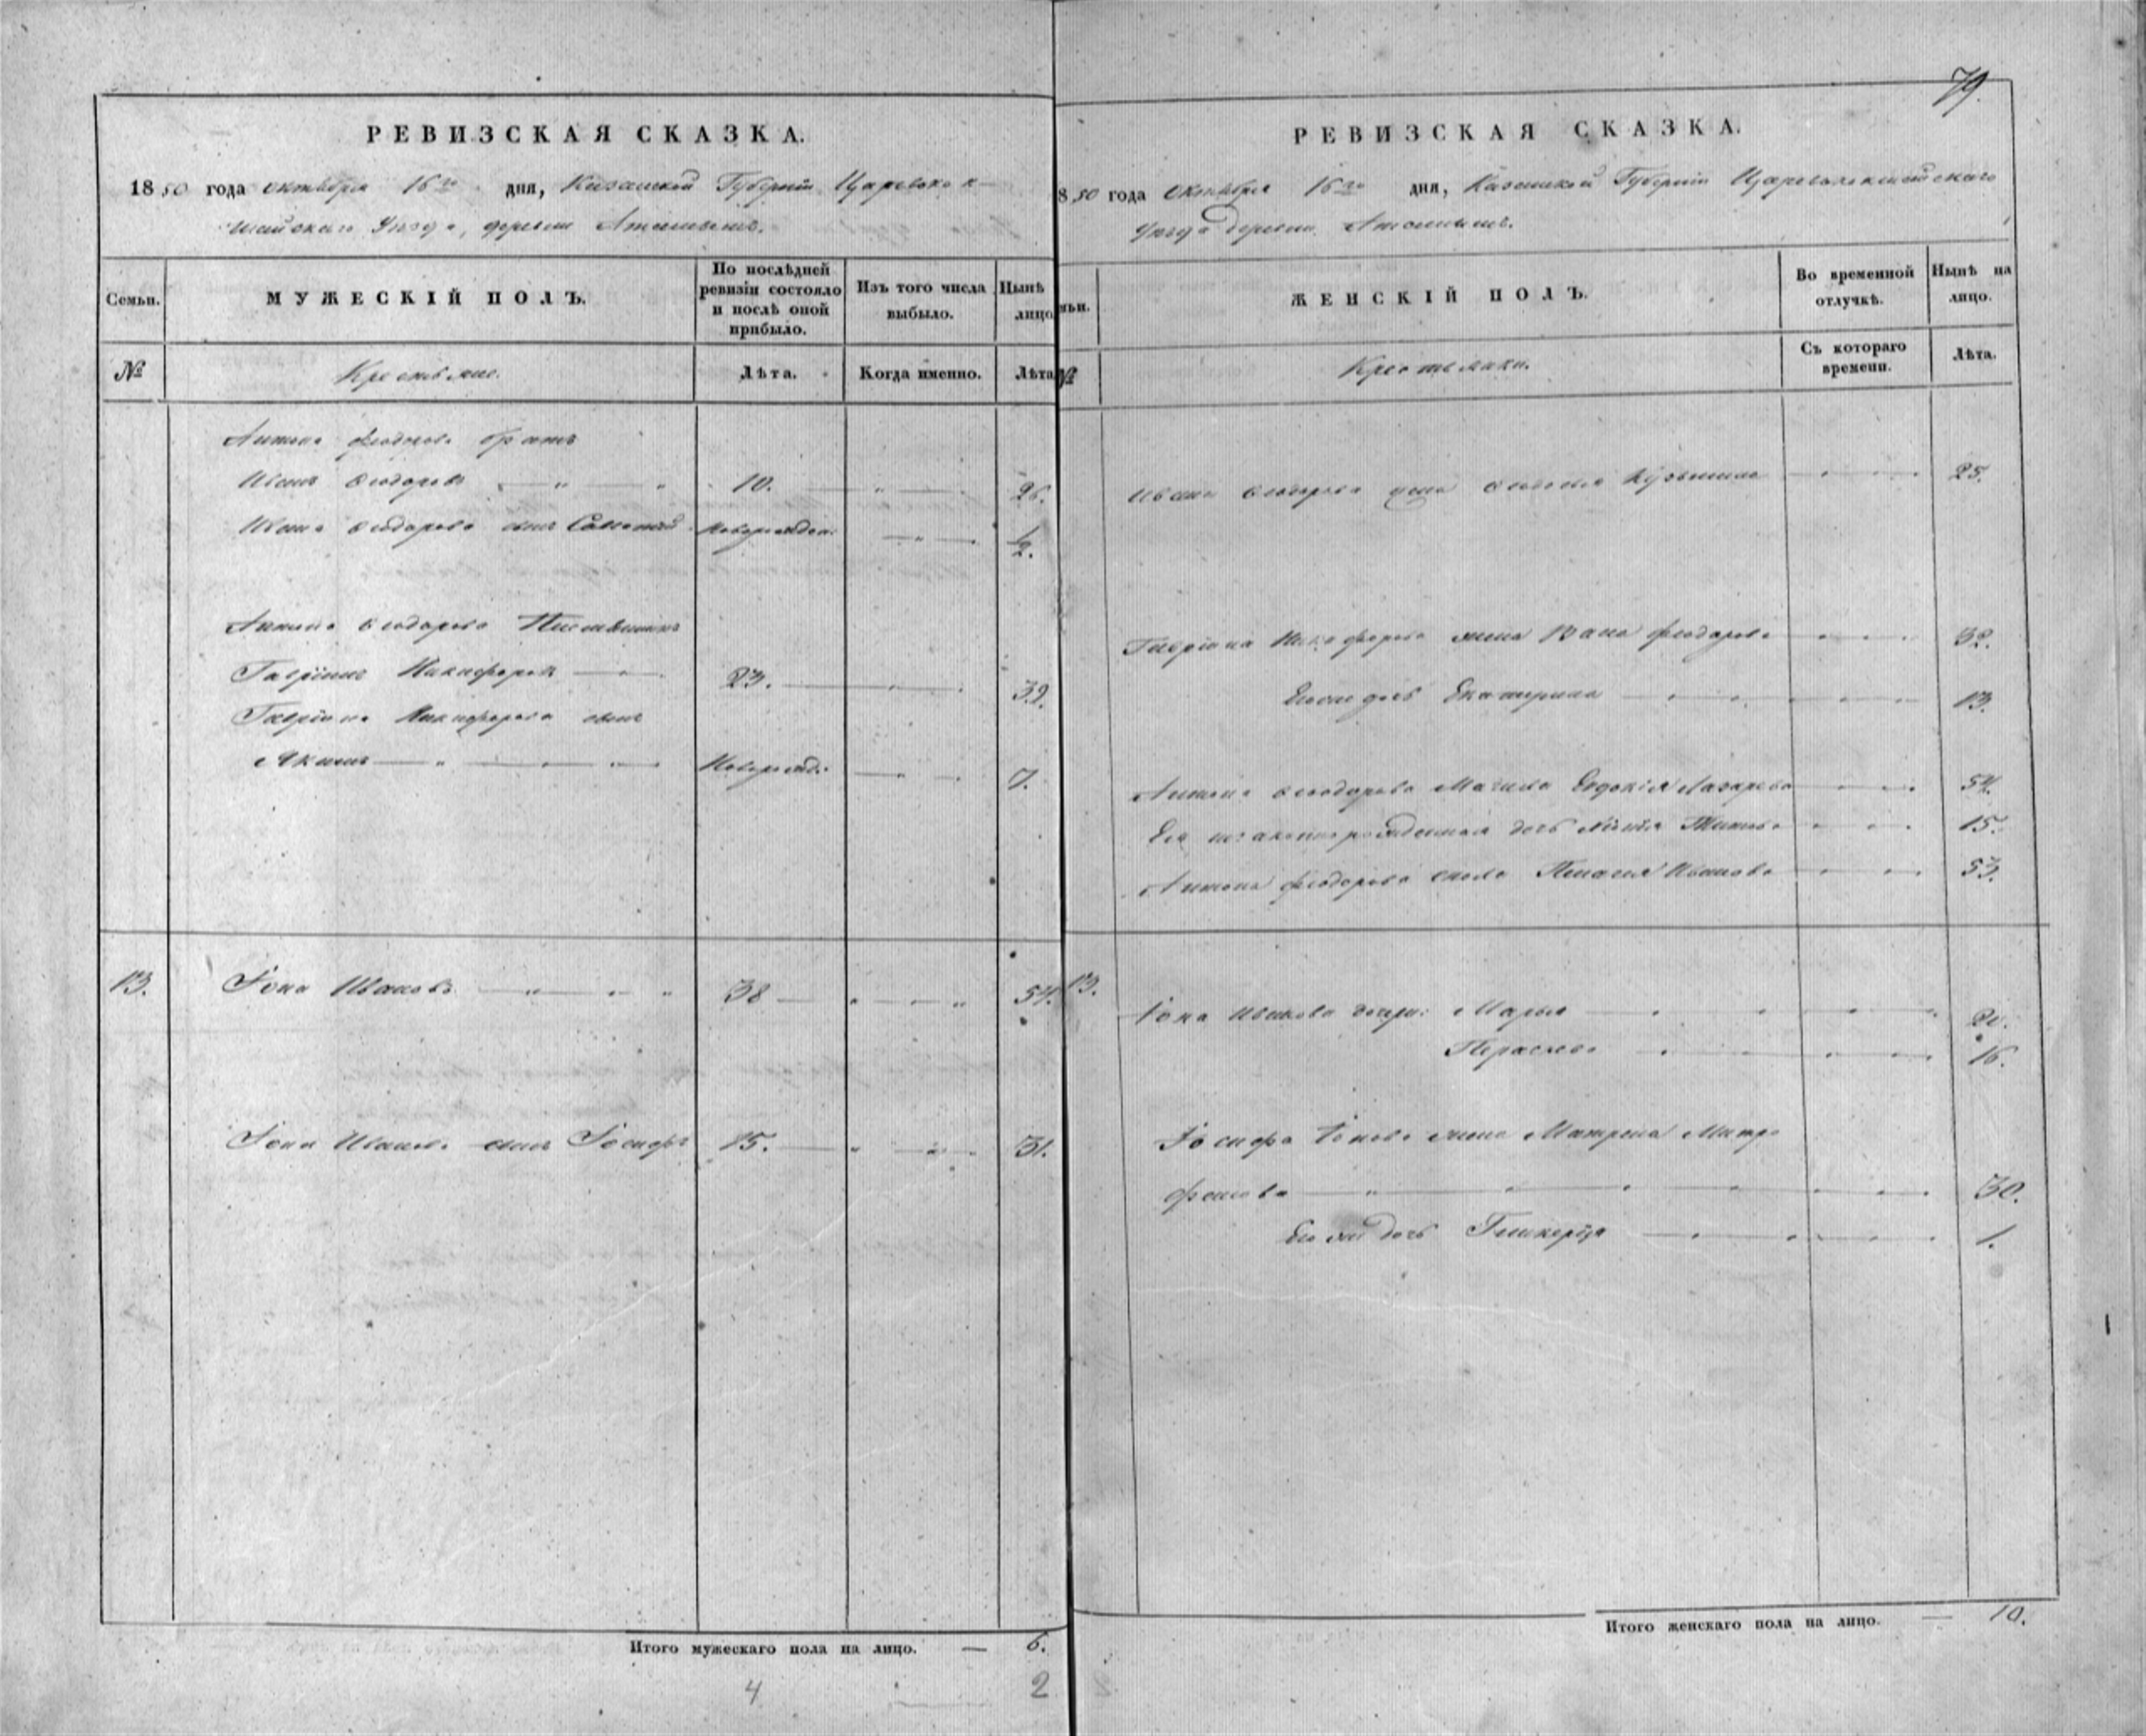 79.
РЕВИЗСКАЯ СКАЗКА.
1850 года октября 16го дня, Казанской Губернiи Царевоко к-
шайского Уезда, деревни
Семьи.
МУЖЕСКIЙ ПОЛЪ.
По послѣдней ревизiи состояло и послѣ оной прибыло.
Изъ того числа выбыло.
Нынѣ лицо
№
Крестьяне.
Лѣта.
Когда именно.
Лѣта
Антона Феодорова братъ
Иванъ Феодоровъ 10. 26.
Ивана Феодорова сынъ новорожден. 1/2.
Антона Феодорова
Никифоровъ 23. 39.
Никифорова сынъ
Якимъ новорожд. 7.
13. Iона Ивановъ 38 54.
Iона Иванова сынъ Iосифъ 15. 31.
Итого мужескаго пола на лицо. — 6.
4 2
РЕВИЗСКАЯ СКАЗКА.
850 года октября 16го дня, Казанской Губернiи Царевококшайскаго
Уезда деревни
ьи.
ЖЕНСКIЙ ПОЛЪ.
Во временной отлучкѣ.
Нынѣ на лицо.
№
Крестьянки.
Съ котораго времени.
Лѣта.
Ивана Феодорова жена 25.
Никифорова жена Феодорова 32.
дочь Екатерина 13.
Антона Феодорова Мачиха Евдокiя Лазарева 54.
Ея незаконнорожденная дочь 15.
Антона Феодорова Иванова 53.
13.
Iона Иванова дочери: Марья 20.
16.
Iосифа Iонова жена Матрена Митро
фанова 30.
дочь Гликерiя 1.
Итого женскаго пола на лицо. — 10.